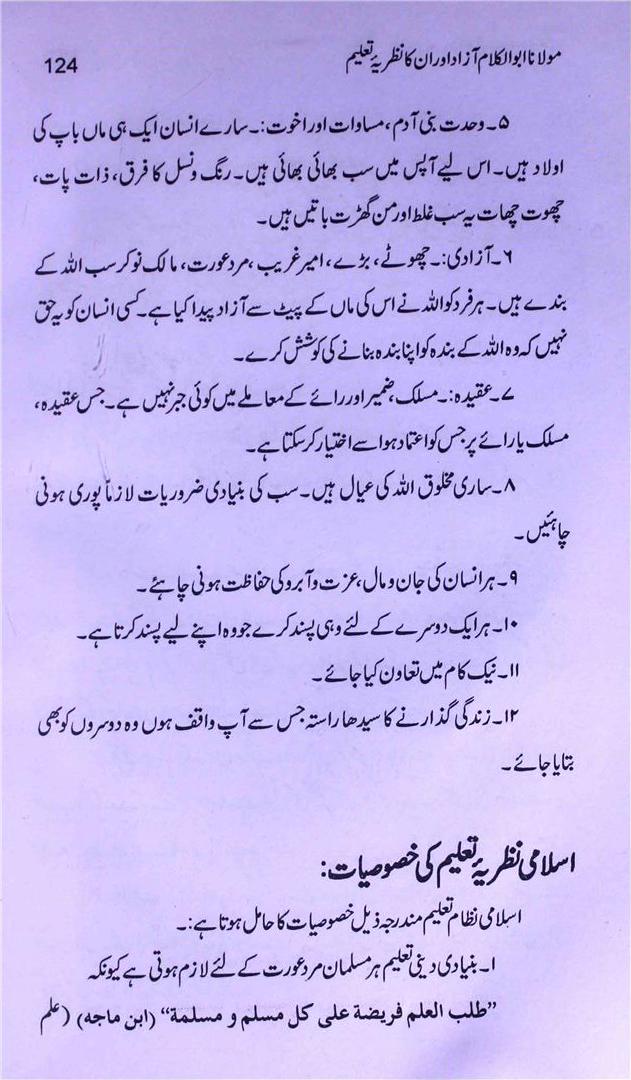 مولانا ابوالکلام آزاد اور ان کا نظریۂ تعلیم 124
۵۔ وحدت بنی آدم، مساوات اور اخوت:۔ سارے انسان ایک ہی ماں باپ کی
اولاد ہیں۔ اس لیے آپس میں سب بھائی بھائی ہیں۔ رنگ و نسل کا فرق، ذات پات،
چھوت چھات یہ سب غلط اور من گھڑت باتیں ہیں۔
۶۔ آزادی:۔ چھوٹے، بڑے، امیر غریب، مرد عورت، مالک نوکر سب اللہ کے
بندے ہیں۔ ہر فرد کو اللہ نے اس کی ماں کے پیٹ سے آزاد پیدا کیا ہے۔ کسی انسان کو یہ حق
نہیں کہ وہ اللہ کے بندہ کو اپنا بندہ بنانے کی کوشش کرے۔
۷۔ عقیدہ:۔ مسلک، ضمیر اور رائے کے معاملے میں کوئی جبر نہیں ہے۔ جس عقیدہ،
مسلک یا رائے پر جس کو اعتماد ہو اسے اختیار کر سکتا ہے۔
۸۔ ساری مخلوق اللہ کی عیال ہیں۔ سب کی بنیادی ضروریات لازماً پوری ہونی
چاہئیں۔
۹۔ ہر انسان کی جان و مال، عزت و آبرو کی حفاظت ہونی چاہئے۔
۱۰۔ ہر ایک دوسرے کے لئے وہی پسند کرے جو وہ اپنے لیے پسند کرتا ہے۔
۱۱۔ نیک کام میں تعاون کیا جائے۔
۱۲۔ زندگی گذارنے کا سیدھا راستہ جس سے آپ واقف ہوں وہ دوسروں کو بھی
بتایا جائے۔
اسلامی نظریۂ تعلیم کی خصوصیات:
اسلامی نظام تعلیم مندرجہ ذیل خصوصیات کا حامل ہوتا ہے:۔
۱۔ بنیادی دینی تعلیم ہر مسلمان مرد عورت کے لئے لازم ہوتی ہے کیونکہ
”طلب العلم فريضة على كل مسلم و مسلمة“ (ابن ماجه) (علم